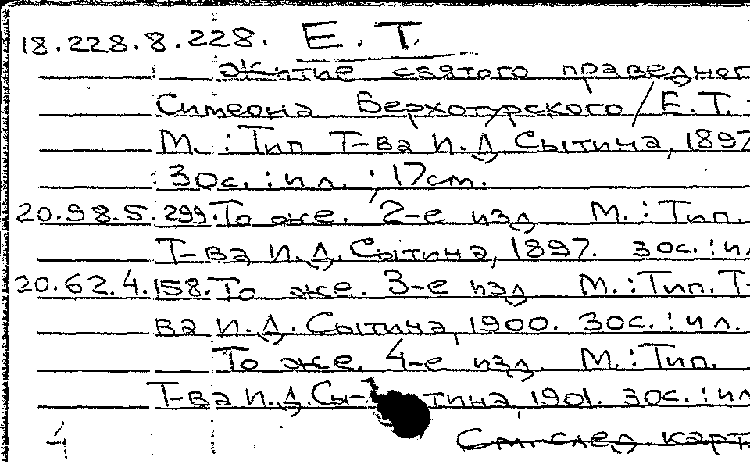 18.228.8.228. Е. Т.
Житие святого праведног
Симеона Верхотурского / Е.Т. :
М. : Тип Т-ва И.Д Сытина, 1897
30с. : ил. ; 17см.
20.98.5.299. То же. 2-е изд М. : Тип.
Т-ва И.Д. Сытина, 1897. 30с. : ил
20.62.4.158. То же. 3-е изд М. : Тип. Т-
ва И.Д. Сытина, 1900. 30с. : ил.
То же. 4-е изд. М. : Тип.
Т-ва И.Д. Сы-тина, 1901. 30с. : ил
4 См. след. карт